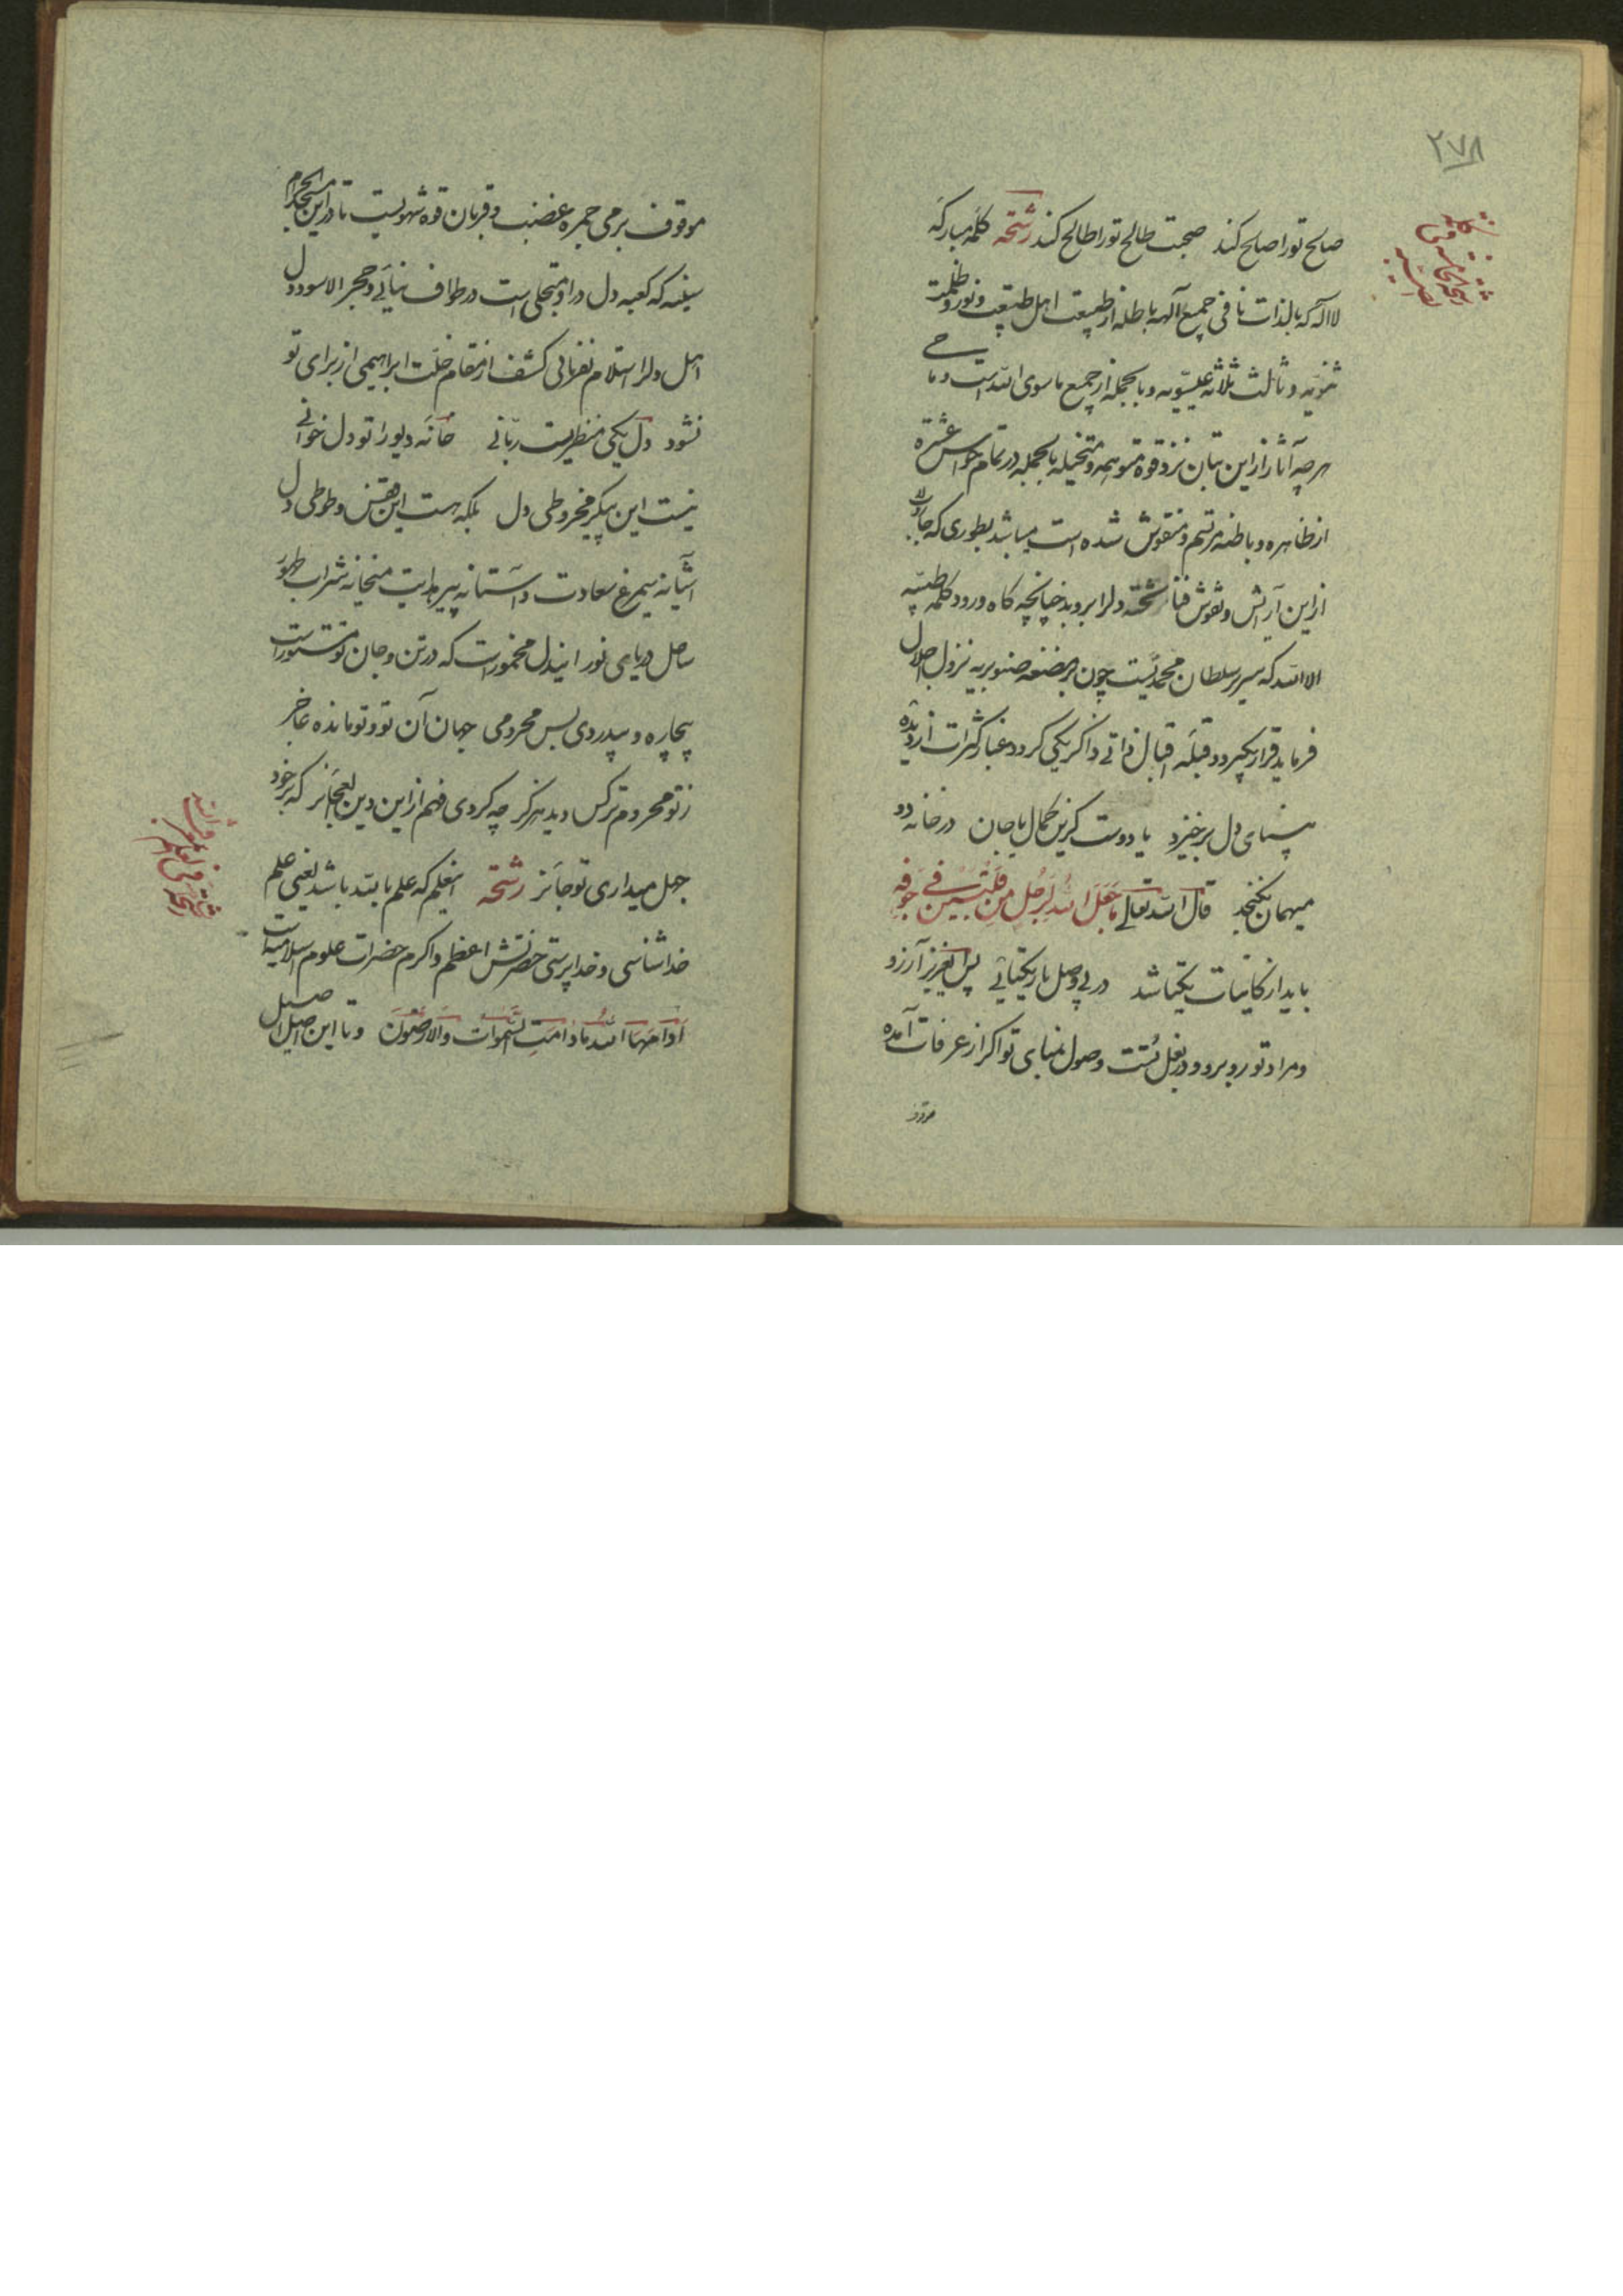 ۲۷۸
صالح تورا صالح کند صحبت طالح تورا طالح کند رشحه کلمه مبارکه
لااله که بالذات نافی جمیع آلهه باطله از طبیعت اهل طبیعت و نور و ظلمت
ثنویه و ثالث ثلاثه عیسویه و بالجمله از جمیع ماسوی الله است و ماحی
هرچه آثار از این بتان نزد قوه متوهمه و متخیله بالجمله در تمام حواس عشره
از ظاهره و باطنه مرتسم و منقوش شده است میباشد بطوری که جاروب
از این آرایش و نقوش فنا تخته دلرا بروبد چنانچه کاه ورود کلمه طیبه
الاالله که سریر سلطان محمدیست چون بر مضغه صنوبریه نزول اجلال
فرماید قرار بکیرد و قبله اقبال ذاتی ذاکر یکی کردد غبار کثرات از دیده
بینای دل برخیزد یا دوست کزین کمال یا جان در خانه دو
میهمان نکنجد قال الله تعالی ما جعل الله لرجل من قلبین فی جوفه
باید از کاینات یکتا شد در پی وصل یار یکتایی پس ایعزیز آرزو
و مراد تو روبرو و در بغل تست وصول بمنای تو اکر از عرفات آمده
موقوف برمی جمره غضب و قربان قوه شهویست تا در این مسجد الحرام
سینه که کعبه دل در او متجلی است در طواف نیائی و حجر الاسود دل
اهل دلرا استلام نفرمائی کشف از مقام خلت ابراهیمی از برای تو
نشود دل یکی منظریست ربانی خانه دیو را تو دل خوانی
نیست این پیکر مخروطی دل بلکه هست این قفس و طوطی دل
آشیانه سیمرغ سعادت و آستانه پیر هدایت میخانه شراب طهور
ساحل دریای نور ایندل مخمور است که در تن و جان تو مستور است
بیچاره و بیدردی بس محرومی جهان آن تو و تو مانده عاجز
ز تو محروم تر کس دید هرکز چه کردی فهم از این دین العجائز که بر خود
جهل میداری تو جائز رشحه اینعلم که علم بالله باشد یعنی علم
خداشناسی و خداپرستی حضرتش اعظم و اکرم حضرات علوم اسلامیه است
ادامها الله مادامت السموات والارضون و با این اصل اصیل